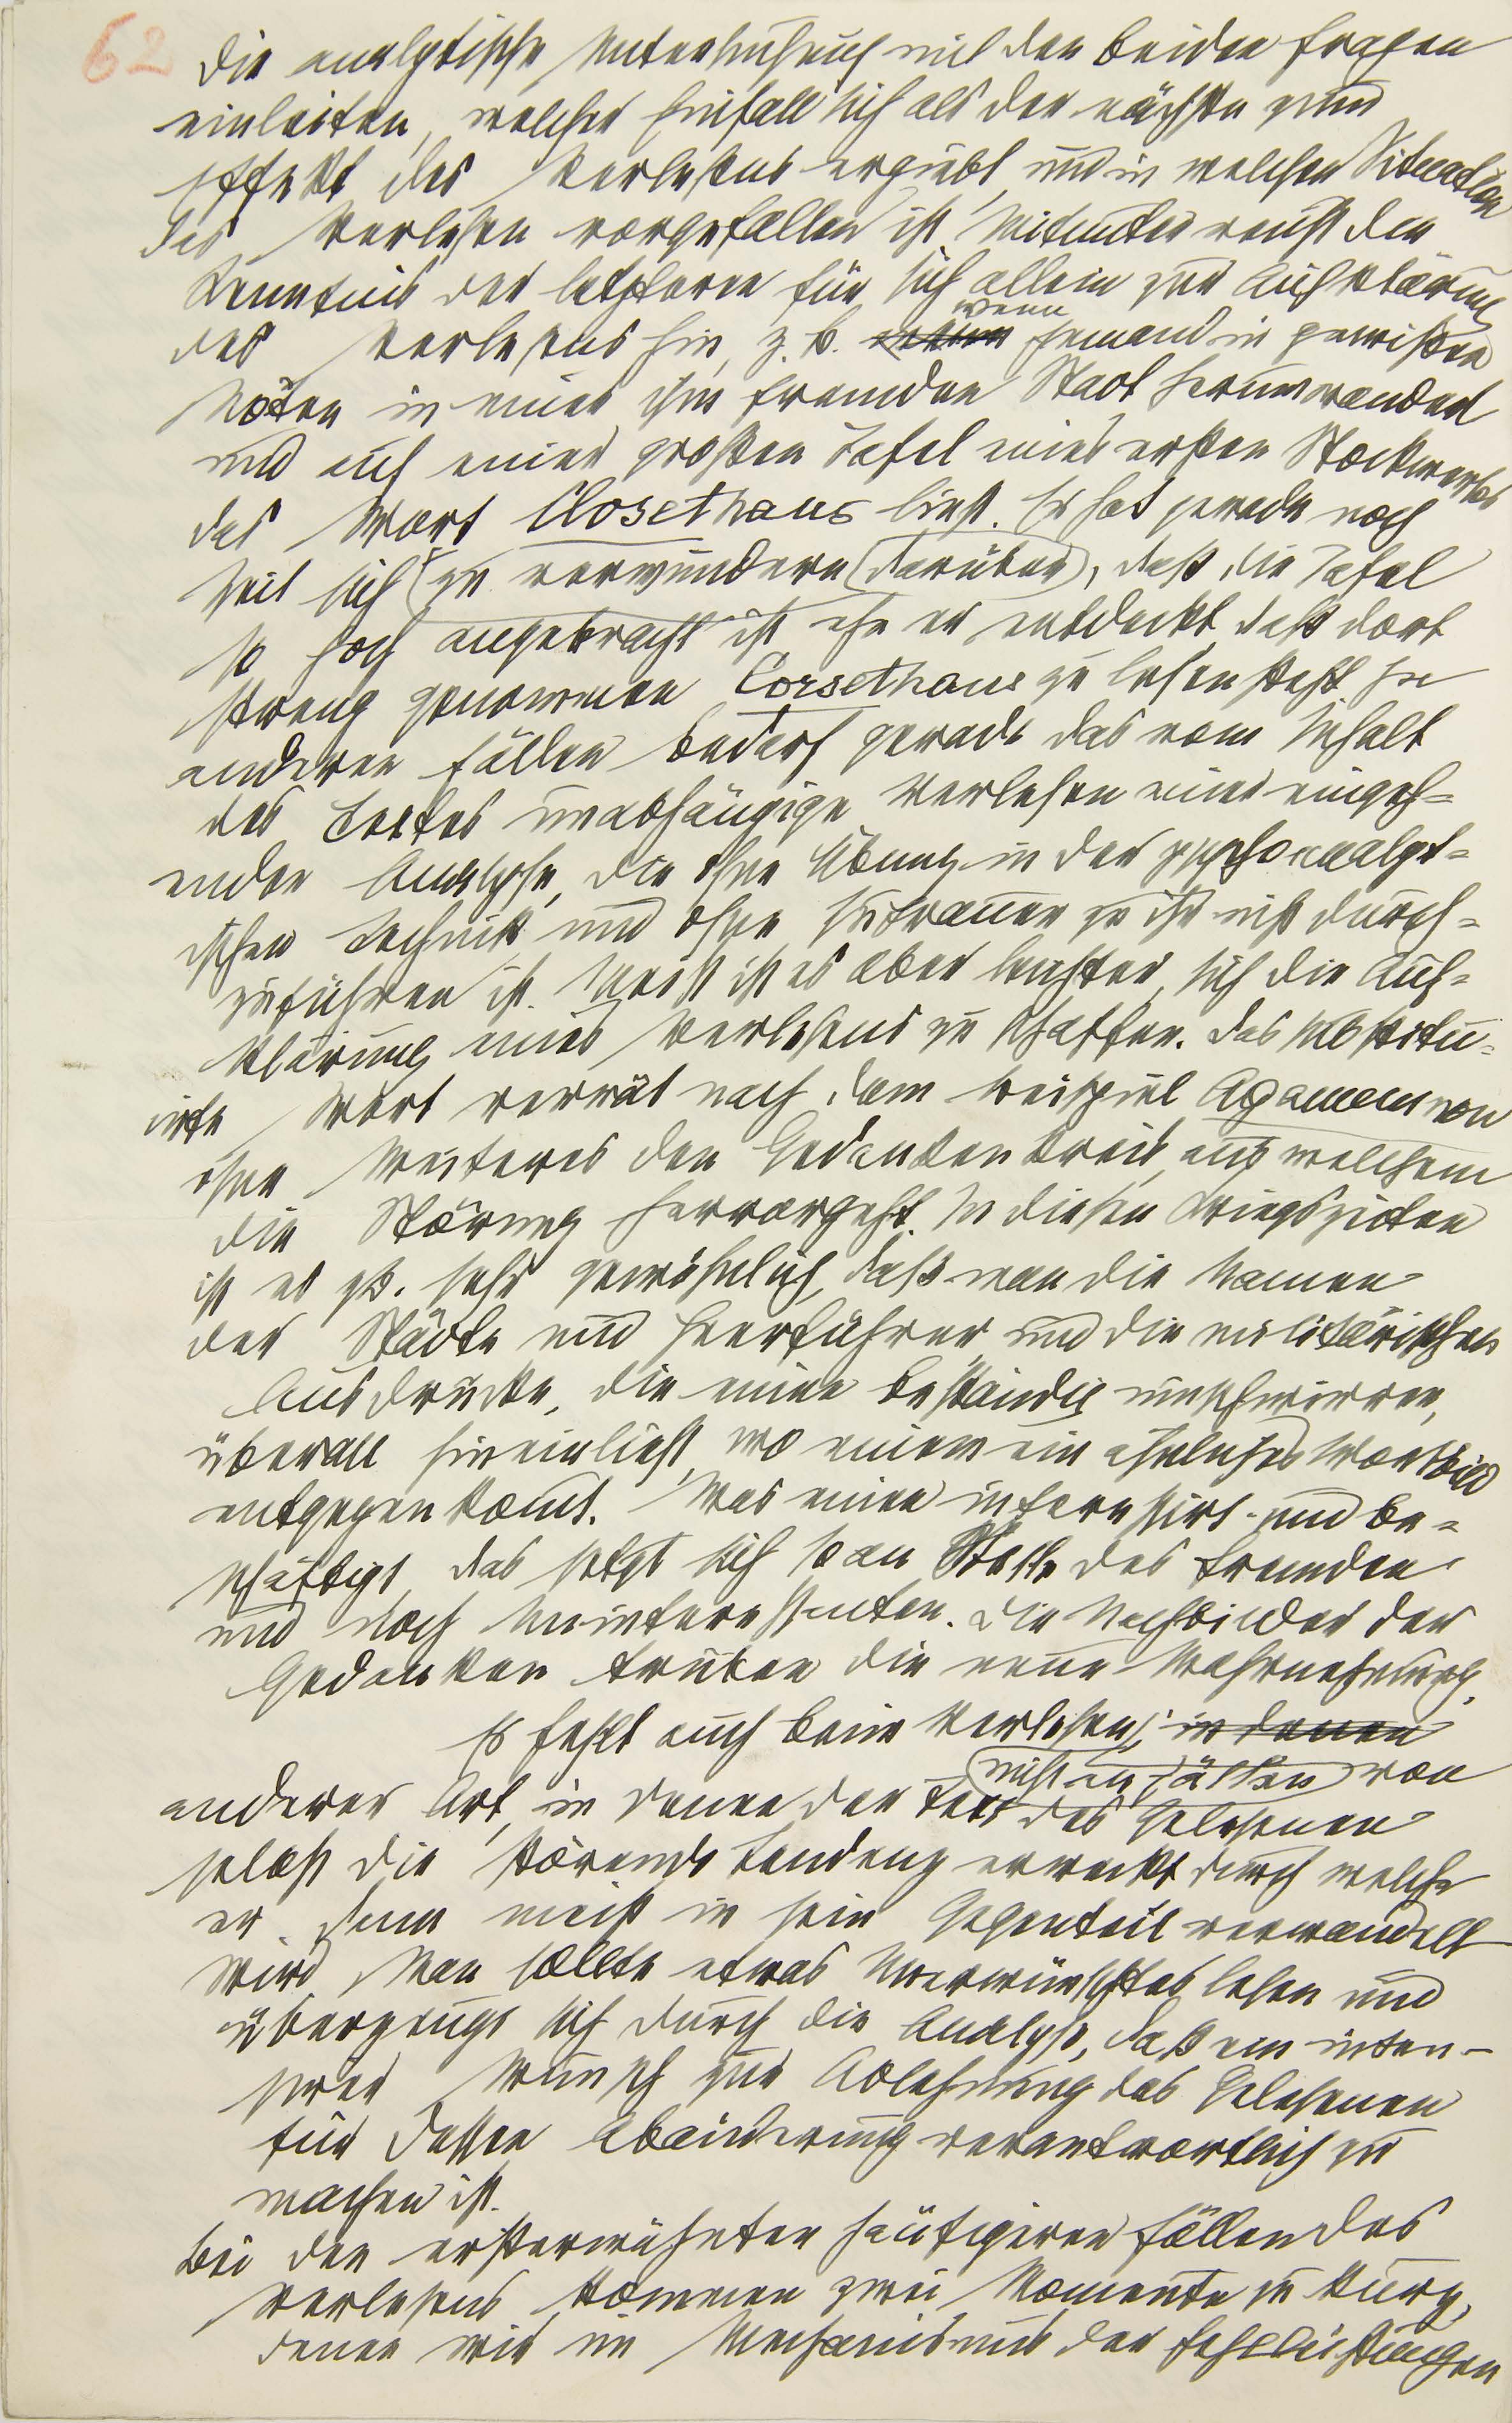 62
die analytische Untersuchung mit den beiden Fragen
einleiten, welcher Einfall sich als der nächste zum
Effekt des Verlesens ergiebt, und in welcher Situation
das Verlesen vorgefallen ist. Mitunter reicht die
Kenntnis der letzteren für sich allein zur Aufklärung
des Verlesens hin, z. B. wenn jemand in gewissen
Nöten in einer ihm fremden Stadt herumwandert
und auf einer großen Tafel eines ersten Stockwerkes
das Wort Closethaus liest. Er hat gerade noch
Zeit sich zu verwundern (darüber), daß die Tafel
so hoch angebracht ist ehe er entdeckt, daß dort
streng genommen Corsethaus zu lesen steht. In
anderen Fällen bedarf gerade das vom Inhalt
des Textes unabhängige Verlesen einer eingeh=
enden Analyse, die ohne Übung in der psychoanalyt=
ischen Technik und ohne Zutrauen zu ihr nicht durch=
zuführen ist. Meist ist es aber leichter, sich die Auf=
klärung eines Verlesens zu schaffen. Das substitu=
irte Wort verrät nach dem Beispiel Agamemnon
ohne Weiteres den Gedankenkreis, aus welchem
die Störung hervorgeht. In diesen Kriegszeiten
ist es zB. sehr gewöhnlich, daß man die Namen
der Städte und Heerführer und die militärischen
Ausdrücke, die einen beständig umschwirren,
überall hineinliest, wo einem ein ähnliches Wortbild
entgegenkomt. Was einen interessirt und be=
schäftigt, das setzt sich so an Stelle des Fremden
und noch Uninteressanten. Die Nachbilder der
Gedanken trüben die neue Wahrnehmung.
Es fehlt auch beim Verlesen in denen
nicht an Fällen von
anderer Art, in denen der Text des Gelesenen
selbst die störende Tendenz erweckt, durch welche
er dann meist in sein Gegenteil verwandelt
wird. Man sollte etwas Unerwünschtes lesen und
überzeugt sich durch die Analyse, daß ein inten-
siver Wunsch zur Ablehnung des Gelesenen
für dessen Abänderung verantwortlich zu
machen ist.
Bei den ersterwähnten häufigeren Fällen des
Verlesens kommen zwei Momente zu kurz,
denen wir im Mechanismus der Fehlleistungen